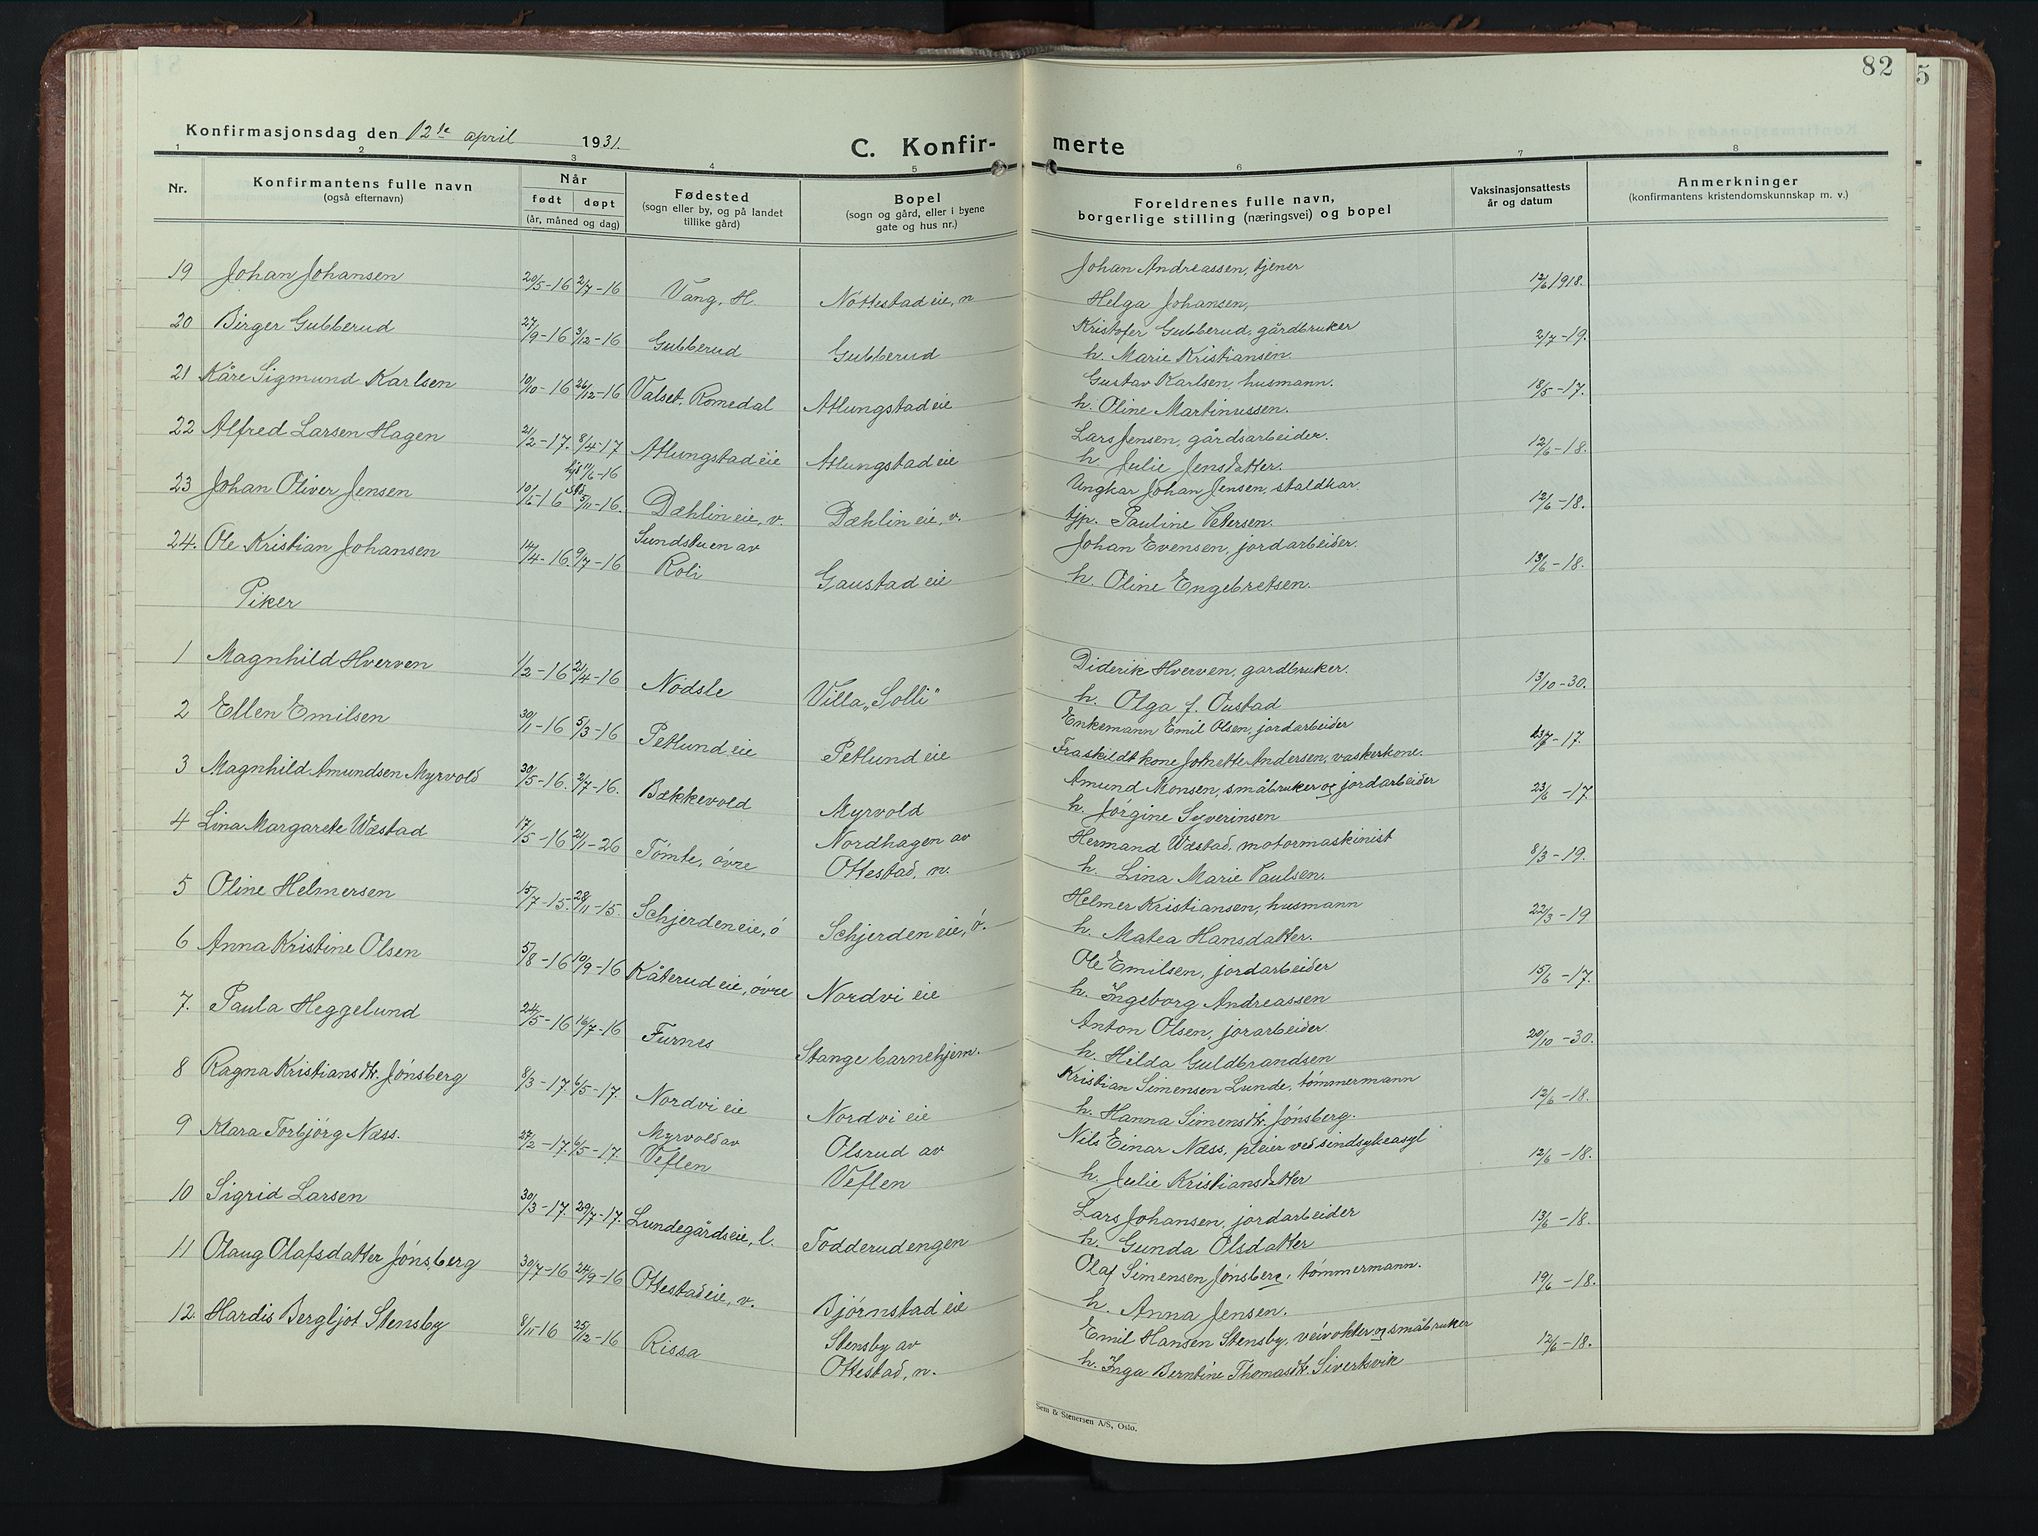 82
5
Konfirmasjonsdag den 12te april 1931.
C. Konfir-
merte
1 2 3 4 5 6 7 8
Nr.
Konfirmantens fulle navn
(også efternavn)
Når
født døpt
(år, måned og dag)
Fødested
(sogn eller by, og på landet
tillike gård)
Bopel
(sogn og gård, eller i byene
gate og hus nr.)
Foreldrenes fulle navn,
borgerlige stilling (næringsvei) og bopel
Vaksinasjonsattests
år og datum
Anmerkninger
(konfirmantens kristendomskunnskap m. v.)
19 Johan Johansen 20/5-16 2/7-16 Vang, H. Nottestad eie, n Johan Andreassen, tjener
Helga Johansen, 12/6 1918.
20 Birger Gubberud 27/9-16 3/12-16 Gubberud Gubberud Kristofer Gubberud, gårdbruker
h. Marie Kristiansen. 2/7-19.
21 Kåre Sigmund Karlsen 10/10-16 26/12-16 Valset, Romedal Atlungstad eie Gustav Karlsen, husmann.
h. Oline Martinussen. 18/5-17.
22 Alfred Larsen Hagen 21/2-17. 8/4-17 Atlungstad eie Atlungstad eie Lars Jensen, gårdsarbeider.
h. Julie Jensdatter. 12/6-18.
23 Johan Oliver Jensen 10/5-16 hjd 11/6-16 5/11-16. Dæhlin eie, v. Dæhlin eie, v. Ungkar Johan Jensen, staldkar
tjp. Pauline Petersen. 12/6-18.
24. Ole Kristian Johansen 14/4-16. 9/7-16 Sundstuen av
Roli Gaustad eie Johan Evensen, jordarbeider.
h. Oline Engebretsen. 13/6-18.
Piker
1 Magnhild Hverven 1/2-16 21/4-16 Nødsle Villa "Solli" Diderik Hverven, gardbruker.
h. Olga f. Oustad 13/10-30.
2 Ellen Emilsen 30/11-16 5/3-16 Petlund eie Petlund eie Enkemann Emil Olsen, jordarbeider
Fraskildt kone Jornette Andersen, vaskerkone. -17.
3 Magnhild Amundsen Myrvold 30/5-16. 2/7-16. Bækkevold Myrvold Amund Monsen, småbruker og jordarbeider
h. Jørgine Syverinsen 23/6-17.
4 Lina Margarete Wæstad 17/5-16 21/11-26 Tømte, øvre Nordhagen av
Ottestad, n. Hermand Wæstad, motormaskinist
h. Lina Marie Paulsen. 8/3-19.
5 Oline Helmersen 15/7-15. 28/11-15. Schjerden eie, ö Schjerden eie, ö. Helmer Kristiansen, husmann
h. Matea Hansdatter. 22/3-19
6 Anna Kristine Olsen 5/8-16 10/9-16 Kåterud eie, øvre Nordvi eie Ole Emilsen, jordarbeider
h. Ingeborg Andreassen 15/6-17.
7. Paula Heggelund 24/5-16 16/7-16 Furnes Stange barnehjem. Anton Olsen, jorarbeider
h. Hilda Guldbrandsen 20/10-30.
8 Ragna Kristiansdtr. Jønsberg 8/3-17. 6/5-17. Nordvi eie Nordvi eie Kristian Simensen Lunde, tømmermann
h. Hanna Simensdtr. Jønsberg. 12/6-18.
9 Klara Torbjørg Næss. 27/2-17. 6/5-17. Myrvold av
Veflen Olsrud av
Veflen Nils Einar Næss, pleier ved sindsykeasyl
h. Julie Kristiansdatter 12/6-18.
10 Sigrid Larsen 30/3-17. 29/7-17. Lundegårdseie, l. Todderudengen Lars Johansen, jordarbeider
h. Gunda Olsdatter 13/6-18.
11 Olaug Olafsdatter Jønsberg 30/7-16 24/9-16 Ottestad eie, v. Bjørnstad eie Olaf Simensen Jønsberg, tømmermann.
h. Anna Jensen. 19/6-18.
12 Hardis Bergljot Stensby 8/11-16 25/12-16 Rissa Stensby av
Ottestad, n. Emil Hansen Stensby, veivokter og småbruker
h. Inga Berntine Thomasdtr. Sivertsvik 12/6-18.
Sem & Stenersen A/S, Oslo.